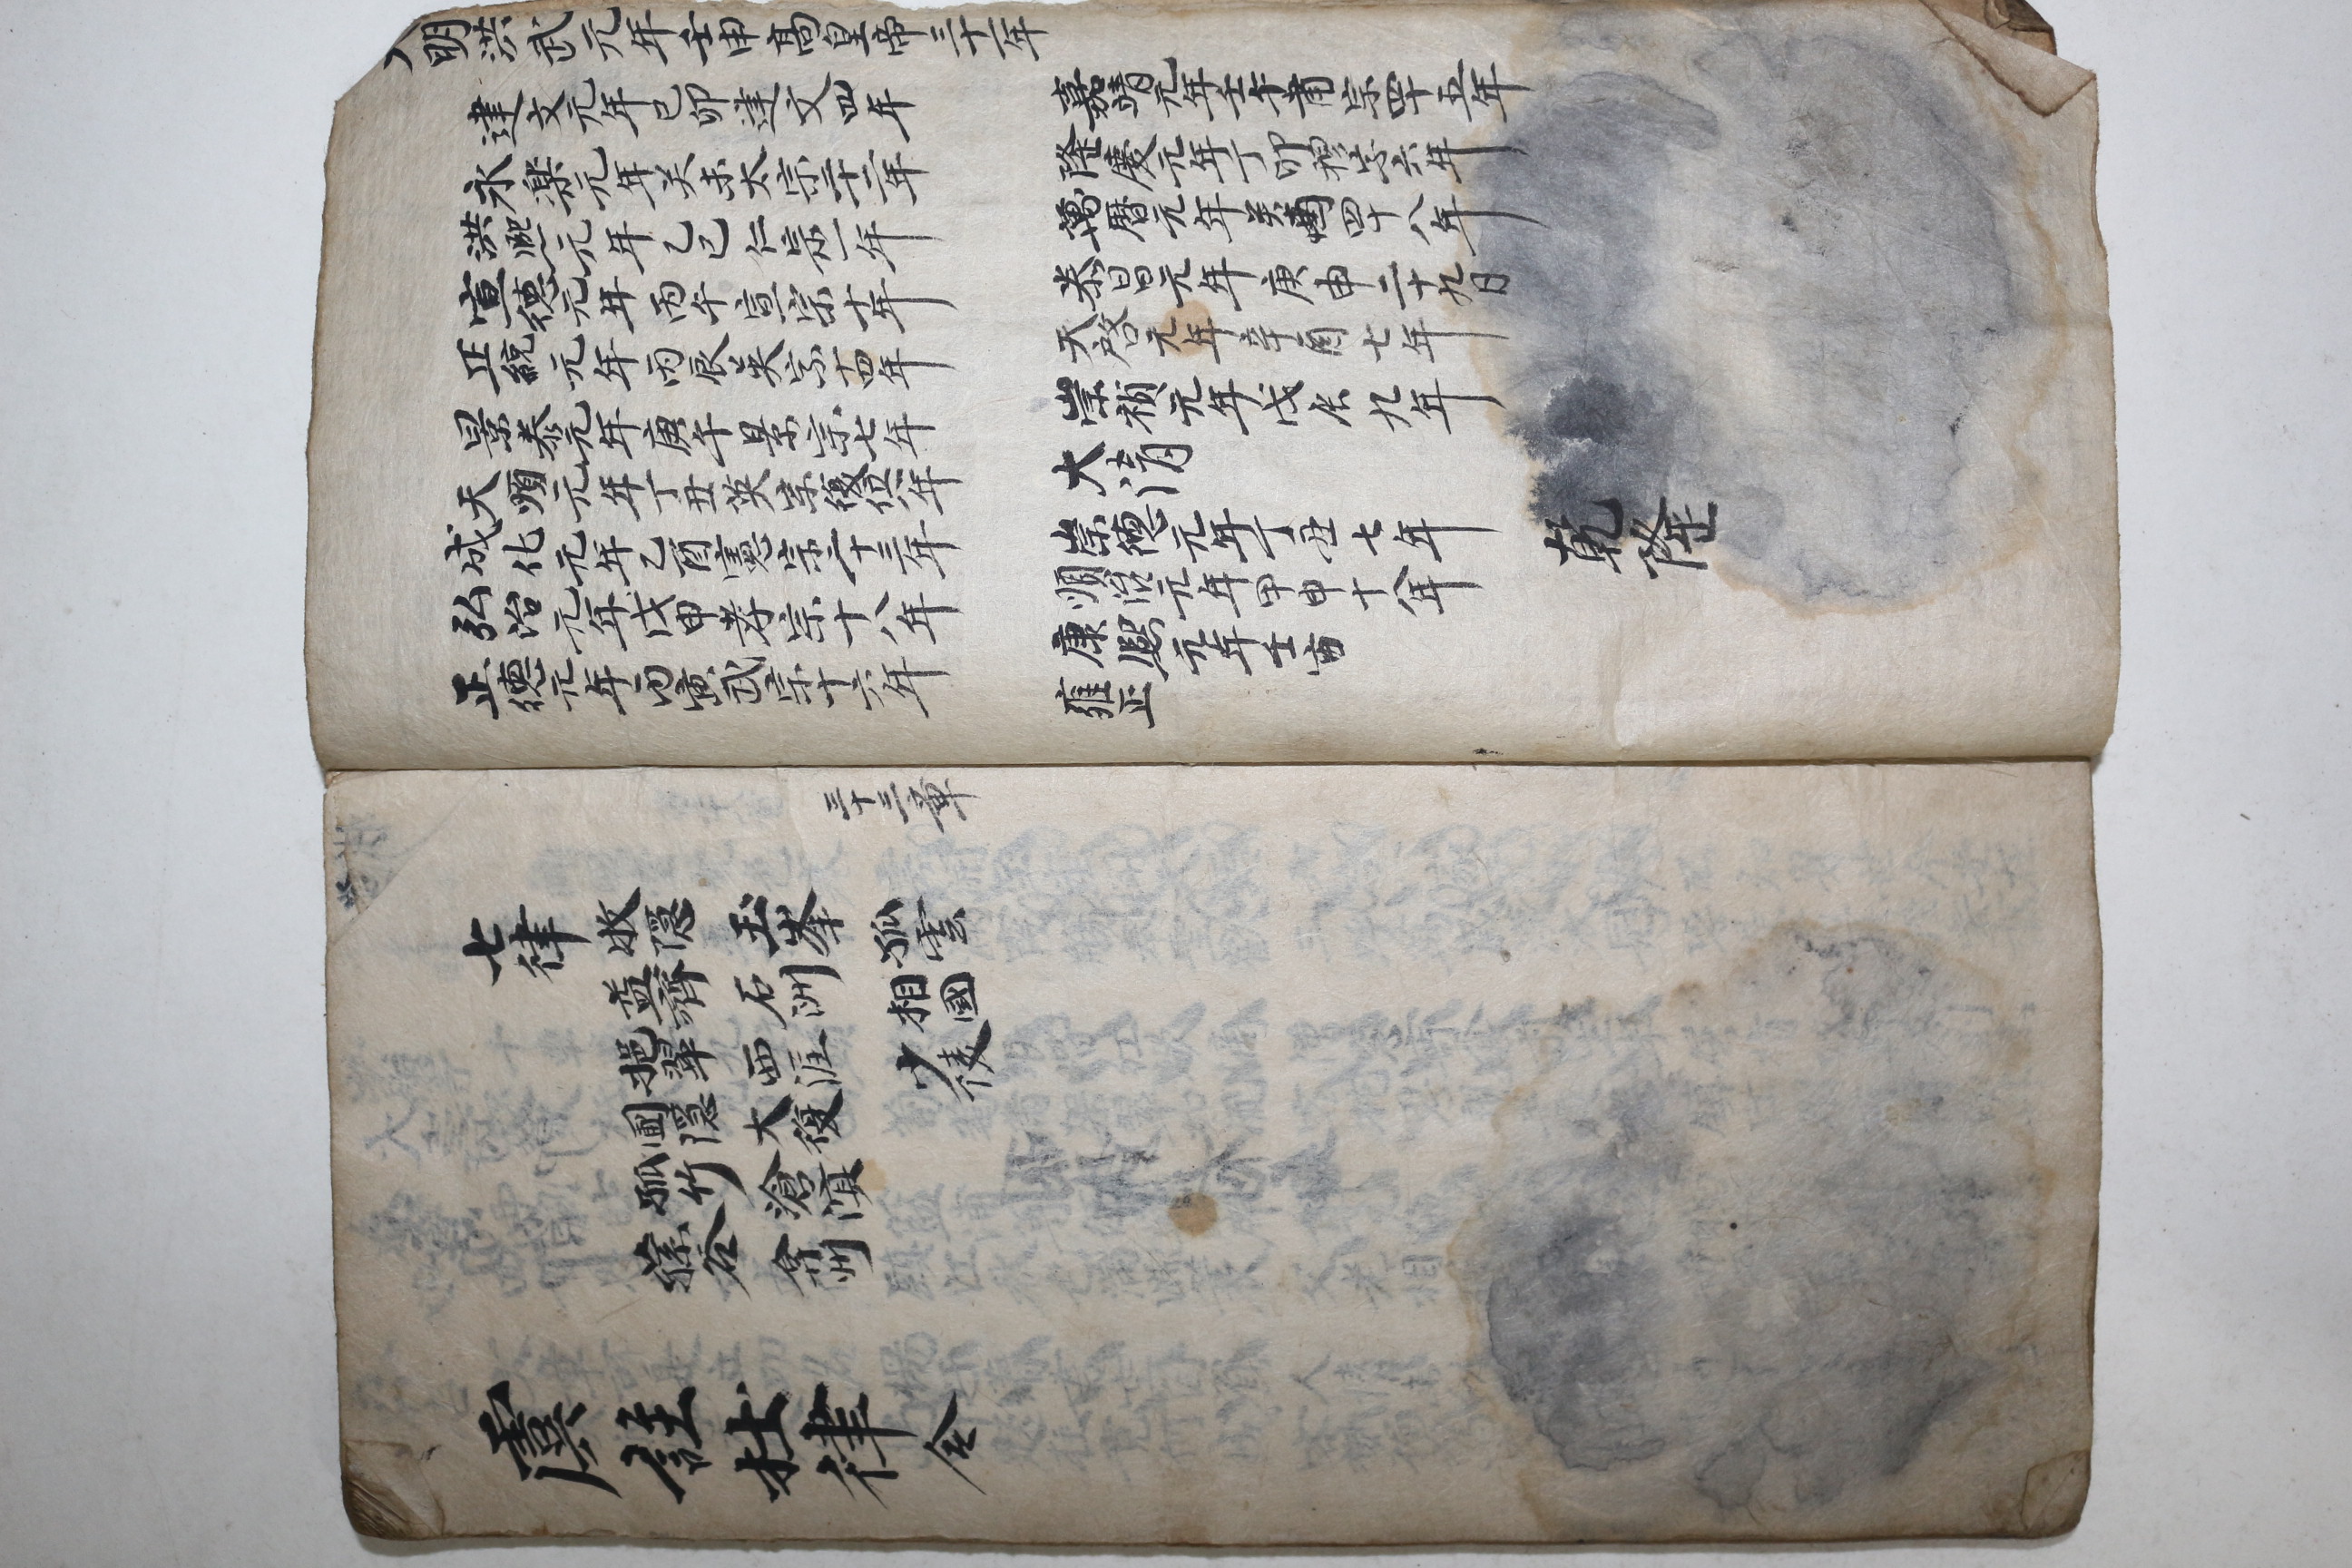 大明洪武元年壬申高皇帝三十一年
建文元年己卯建文四年
永樂元年癸未太宗二十二年
洪熙元年乙巳仁宗一年
宣德元年丙午宣宗十年
正統元年丙辰英宗十四年
景泰元年庚午景宗七年
天順元年丁丑英宗復位八年
成化元年乙酉憲宗二十三年
弘治元年戊申孝宗十八年
正德元年丙寅武宗十六年
嘉靖元年壬午肅宗四十五年
隆慶元年丁卯穆宗六年
萬曆元年癸酉四十八年
泰昌元年庚申二十九日
天啓元年辛酉七年
崇禎元年戊辰九年
大清
崇德元年丁丑七年
順治元年甲申十八年
康熙元年壬寅
雍正
乾隆
三十三章
七律
牧隱
益齋
挹翠
圃隱
孤竹
蓀谷
玉峯
石洲
西涯
大復
滄溟
弇州
孤雲
相國
少陵
虞註杜律 全